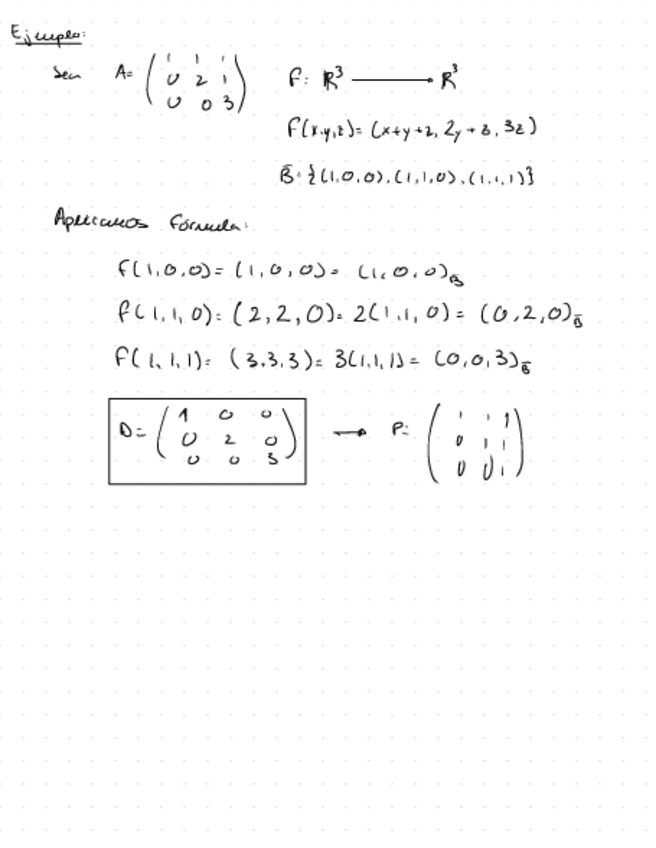 Ejemplo:
Sea A= (1 1 1 / 0 2 1 / 0 0 3) f: ℝ³ ⟶ ℝ³
f(x,y,z)= (x+y+z, 2y+z, 3z)
B̄= {(1,0,0),(1,1,0),(1,1,1)}
Aplicamos fórmula:
f(1,0,0)= (1,0,0)= (1,0,0)_B̄
f(1,1,0)= (2,2,0)= 2(1,1,0)= (0,2,0)_B̄
f(1,1,1)= (3,3,3)= 3(1,1,1)= (0,0,3)_B̄
D= (1 0 0 / 0 2 0 / 0 0 3) ⟶ P= (1 1 1 / 0 1 1 / 0 0 1)